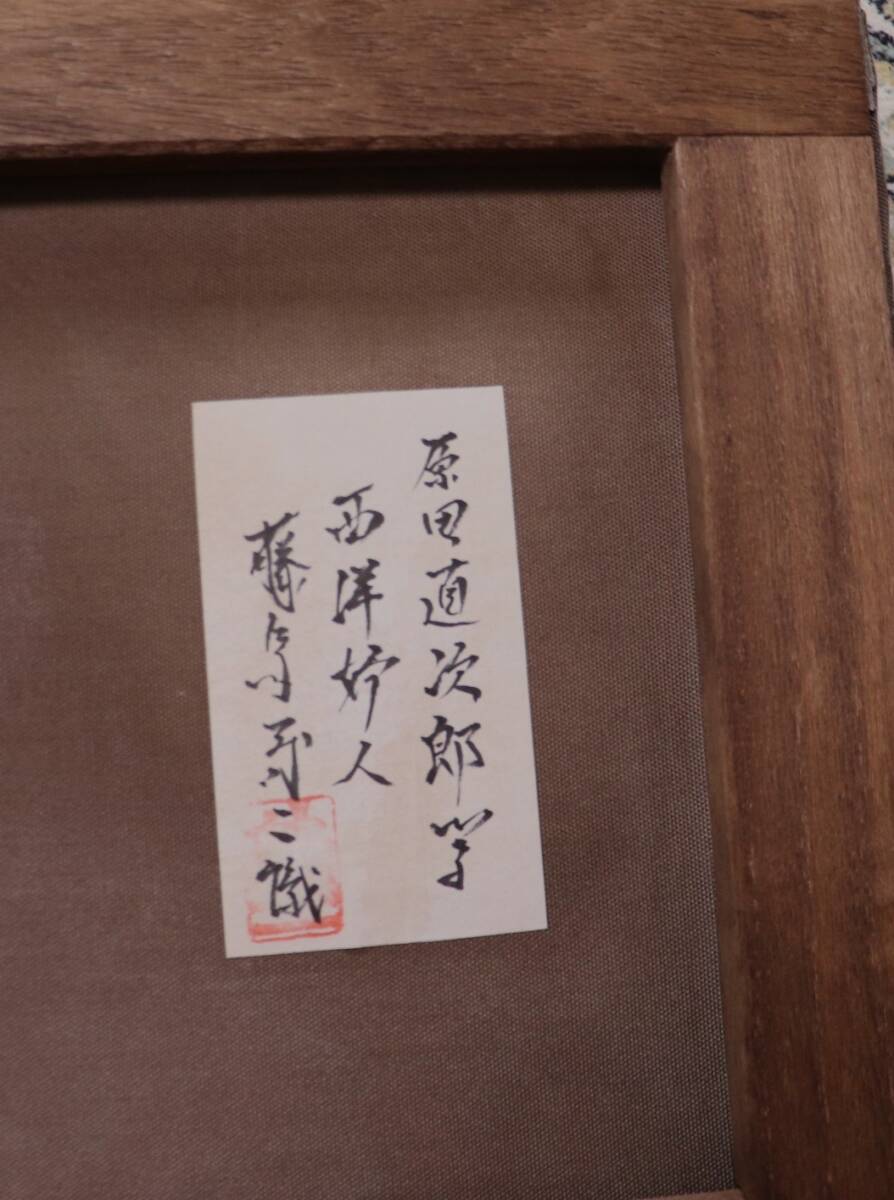 原田直次郎筆
西洋婦人
藤島武二識